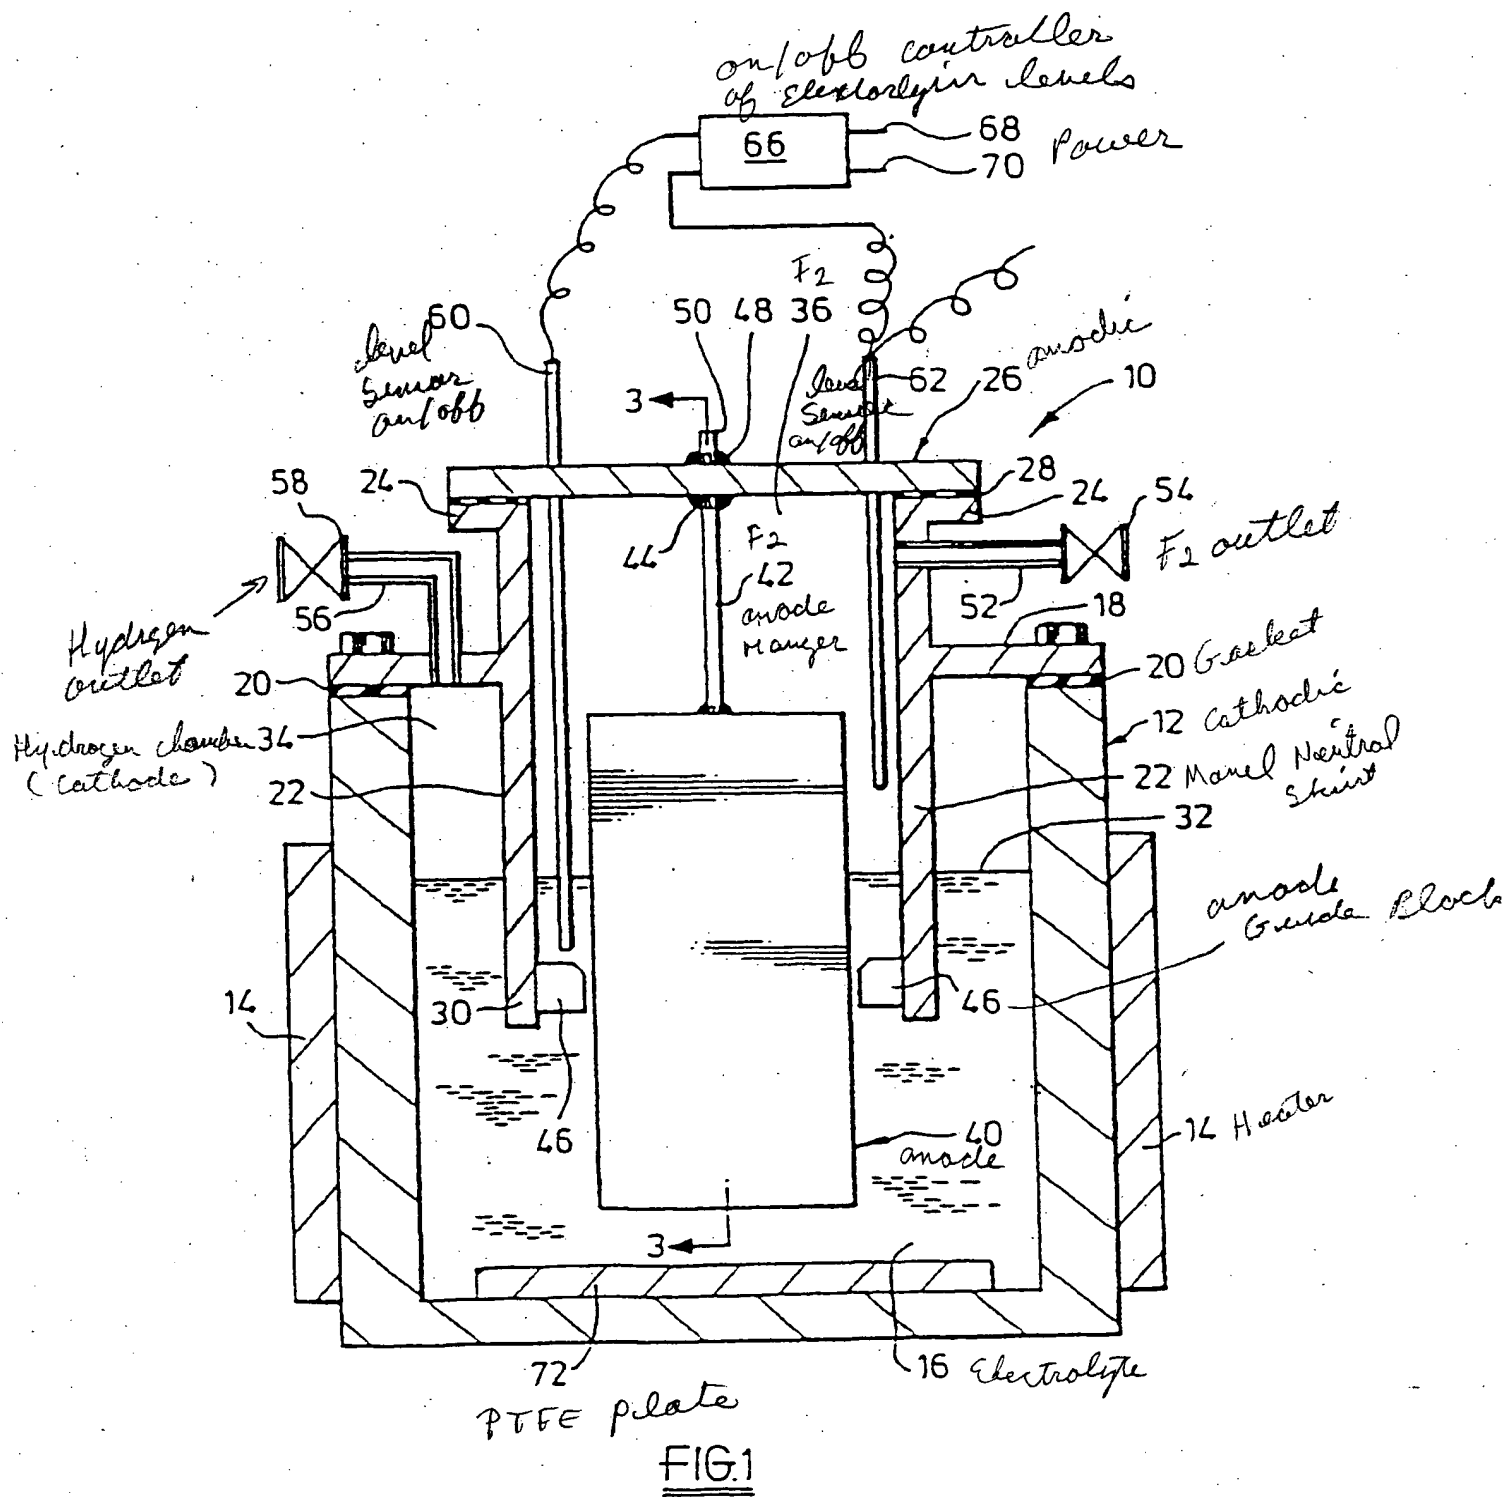 on/off controller
of Elextorlyin levels
66
68
70 Power
F2
60
50 48 36
level
sensor
on/off
level 62
sensor
on/off
26 anodic
10
3
58
24
28
24 54
44
F2
42
anode
Hanger
F2 outlet
56
52
18
Hydrgen
outlet
20
20 Gasket
12 Cathodic
Hydrogen chamber 34
(Cathode)
22
22 Monel Neutral
Skirt
32
anode
Guide Block
14
30
46
46
40
anode
14 Heater
3
72
PTFE plate
16 Electrolyte
FIG.1